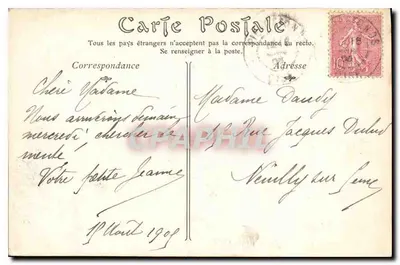 Carte Postale
Tous les pays étrangers n'acceptent pas la correspondance au recto.
Se renseigner à la poste.
Correspondance
Adresse
Chère Madame
Nous arriverons demain
mercredi chercher
Votre petite Jeanne
15 Août 1905
Madame Daudy
Rue Jacques Dulud
Neuilly sur Seine